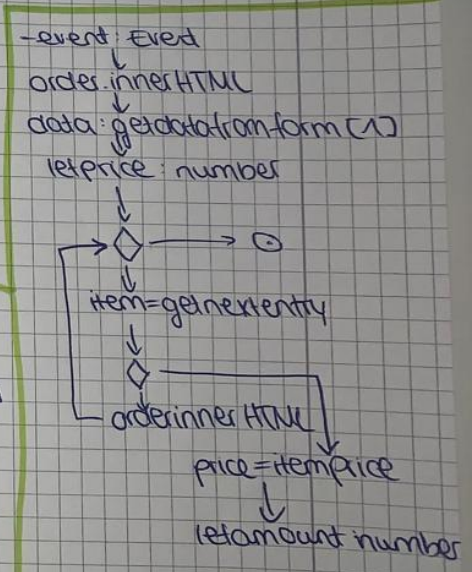 -event: Eved
order.innerHTML
data: getdatafromform(1)
letprice: number
item=getnextentry
orderinnerHTML
price=itemprice
letamount number